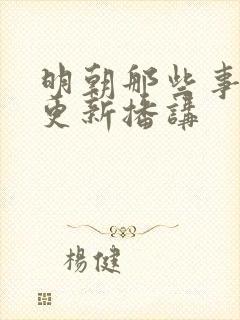 明朝那些事
更新播講
楊健